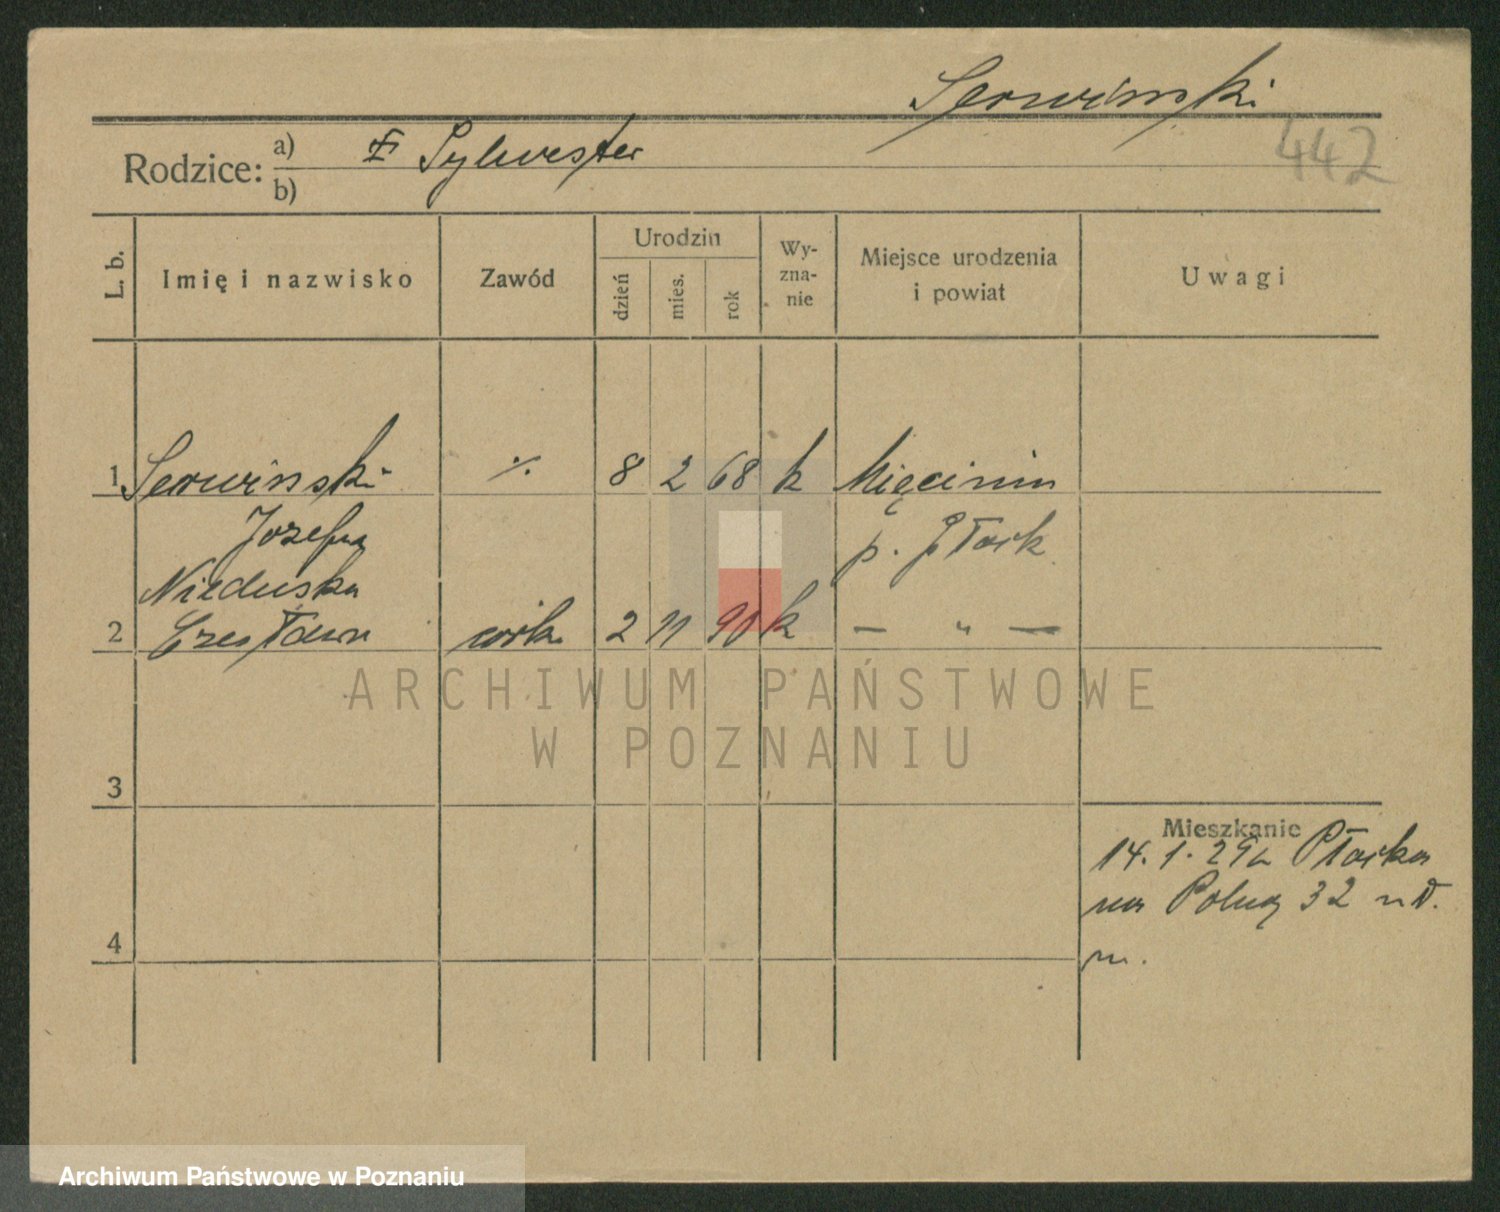 Serwinski
442
Rodzice: a) Sylwester
b)
L. b. Imię i nazwisko Zawód Urodzin dzień mies. rok Wy-zna-nie Miejsce urodzenia i powiat Uwagi
1 Serwinski ./. 8 2 68 k Mięcinin
Jozefa p. Płock
Nieduska
2 Czesława córk. 2 11 90 k — " —
ARCHIWUM PAŃSTWOWE
W POZNANIU
3
Mieszkanie
14. 1. 29 Płocka
32
4 m.
Archiwum Państwowe w Poznaniu